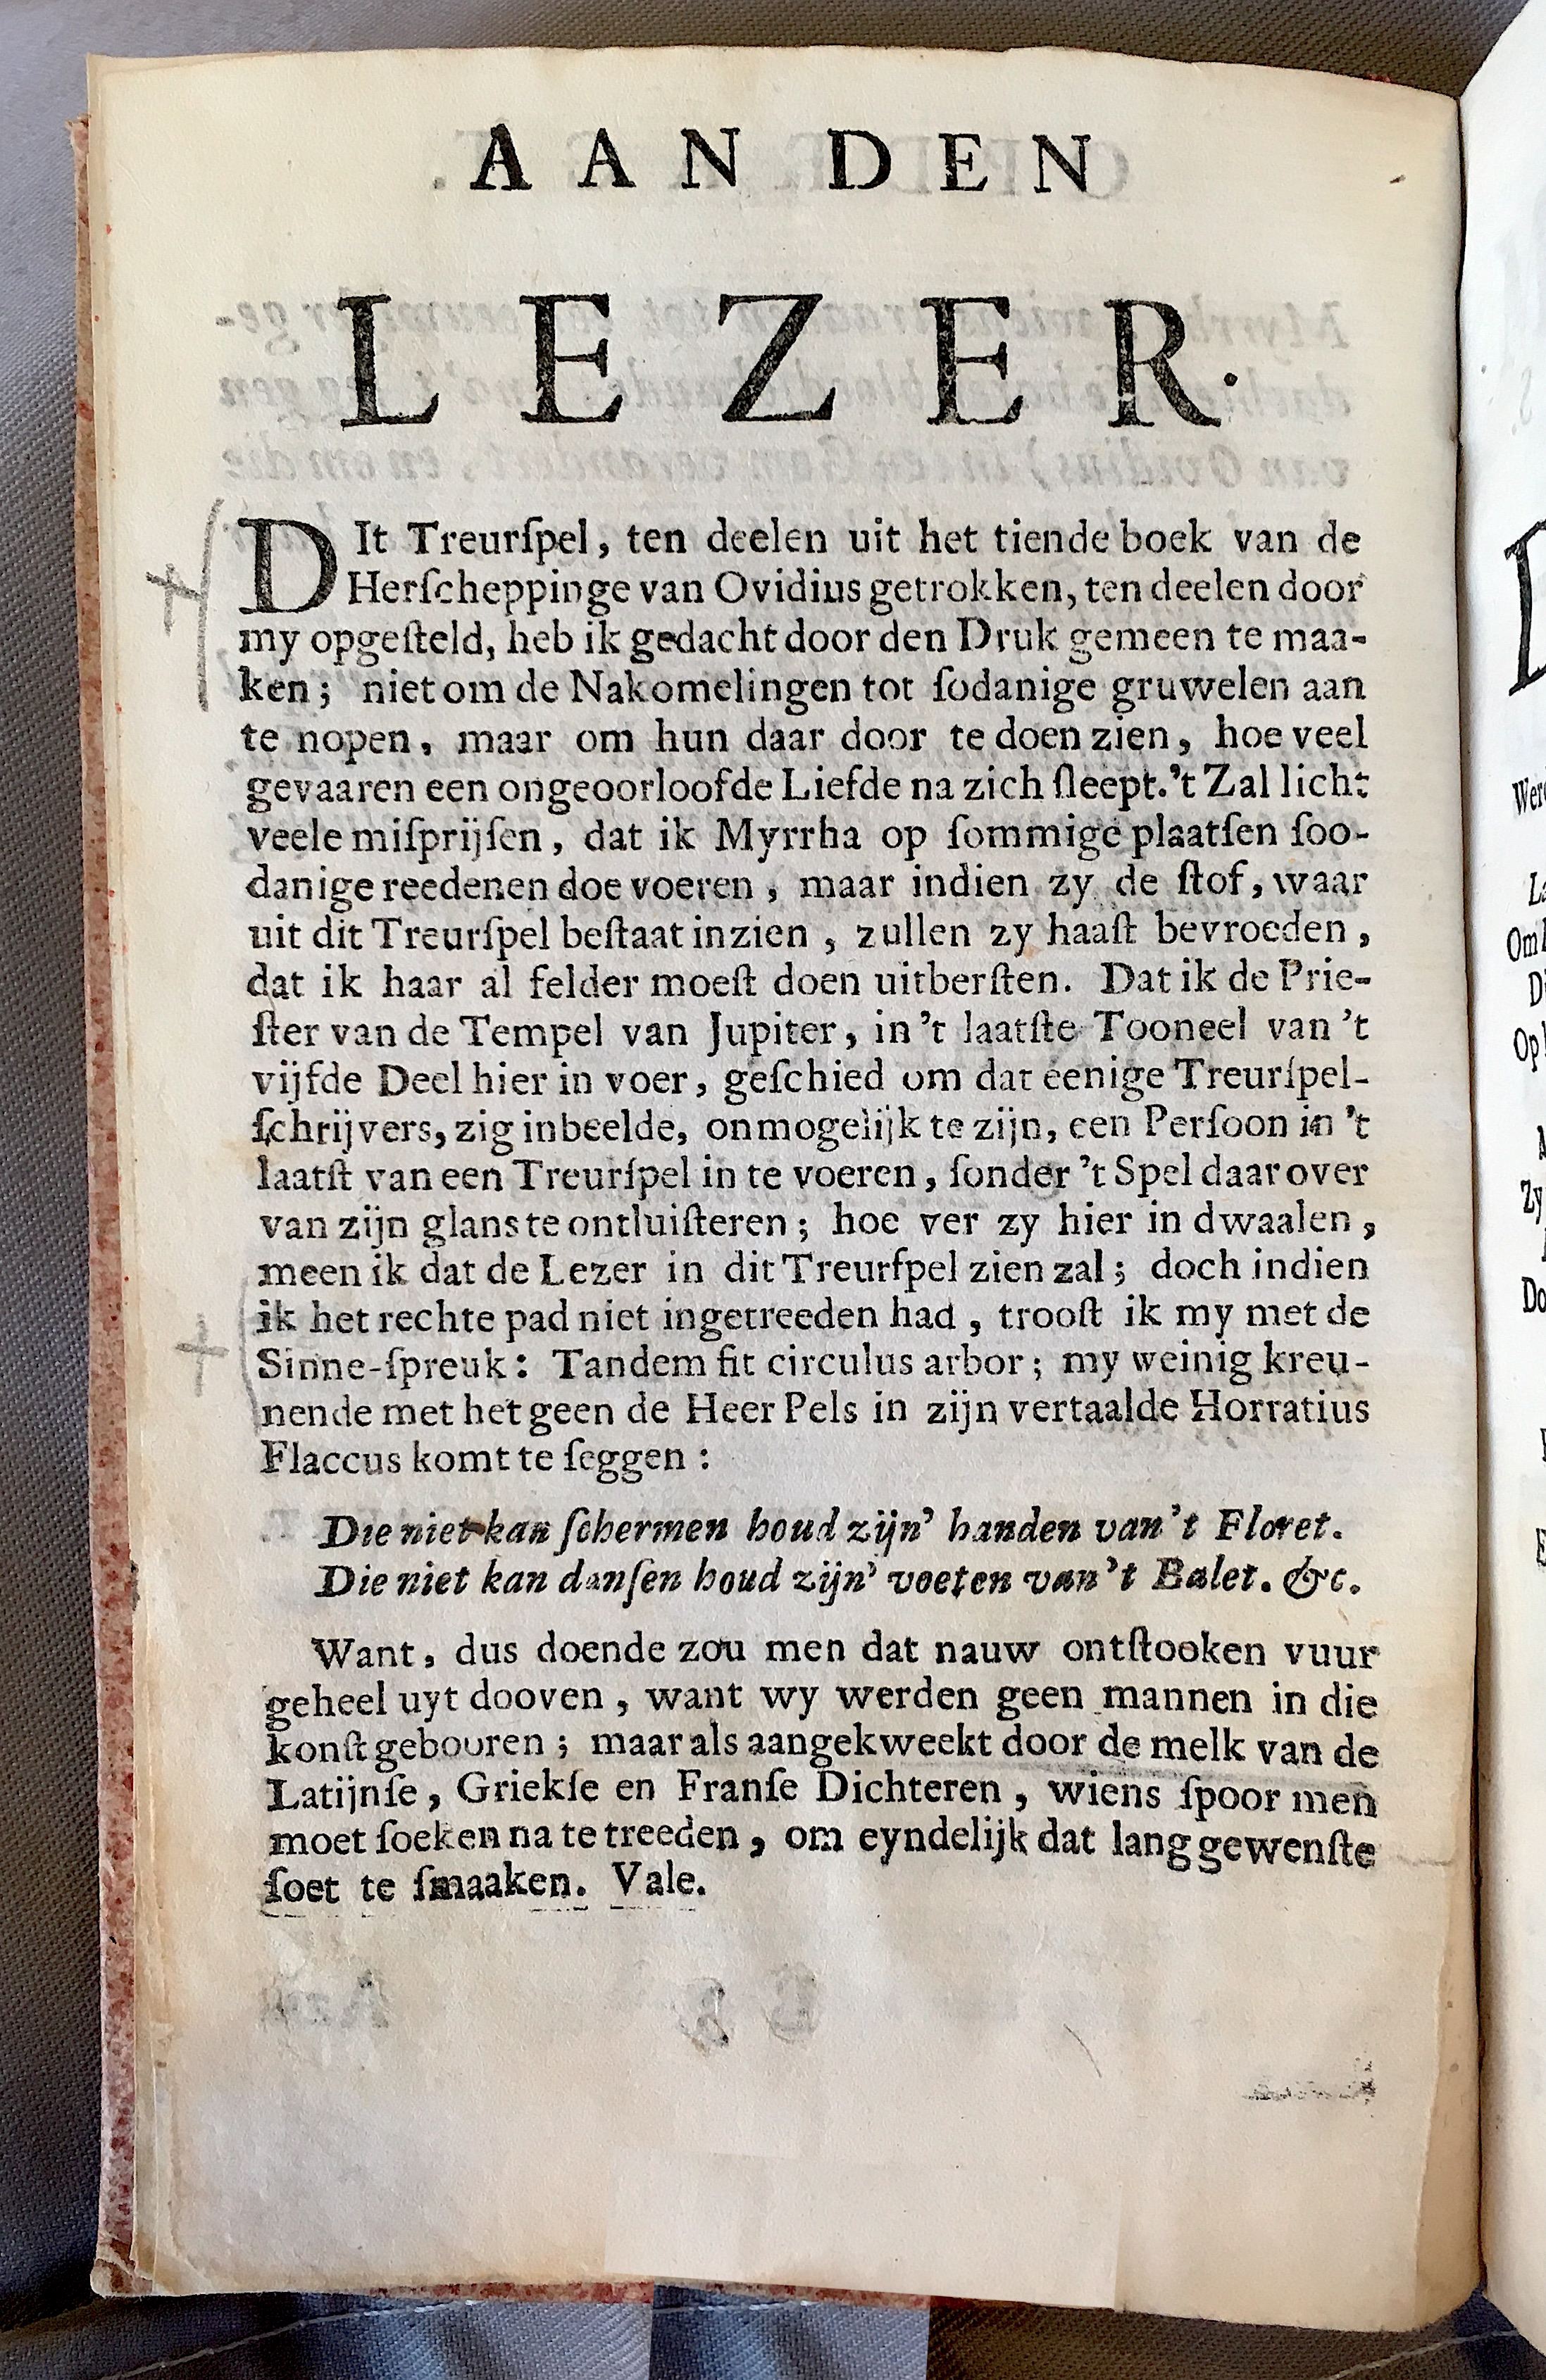 AAN DEN
LEZER.
DIt Treurſpel, ten deelen uit het tiende boek van de
Herſcheppinge van Ovidius getrokken, ten deelen door
my opgeſteld, heb ik gedacht door den Druk gemeen te maa-
ken; niet om de Nakomelingen tot ſodanige gruwelen aan
te nopen, maar om hun daar door te doen zien, hoe veel
gevaaren een ongeoorloofde Liefde na zich ſleept. 't Zal licht
veele miſprijſen, dat ik Myrrha op ſommige plaatſen ſoo-
danige reedenen doe voeren, maar indien zy de ſtof, waar
uit dit Treurſpel beſtaat inzien, zullen zy haaſt bevroeden,
dat ik haar al felder moeſt doen uitberſten. Dat ik de Prie-
ſter van de Tempel van Jupiter, in 't laatſte Tooneel van 't
vijfde Deel hier in voer, geſchied om dat eenige Treurſpel-
ſchrijvers, zig inbeelde, onmogelijk te zijn, een Perſoon in 't
laatſt van een Treurſpel in te voeren, ſonder 't Spel daar over
van zijn glans te ontluiſteren; hoe ver zy hier in dwaalen,
meen ik dat de Lezer in dit Treurſpel zien zal; doch indien
ik het rechte pad niet ingetreeden had, trooſt ik my met de
Sinne-ſpreuk: Tandem fit circulus arbor; my weinig kreu-
nende met het geen de Heer Pels in zijn vertaalde Horratius
Flaccus komt te ſeggen:
Die niet kan ſchermen houd zijn' handen van 't Floret.
Die niet kan danſen houd zijn' voeten van 't Balet. &c.
Want, dus doende zou men dat nauw ontſtooken vuur
geheel uyt dooven, want wy werden geen mannen in die
konſt gebouren; maar als aangekweekt door de melk van de
Latijnſe, Griekſe en Franſe Dichteren, wiens ſpoor men
moet ſoeken na te treeden, om eyndelijk dat lang gewenſte
ſoet te ſmaaken. Vale.